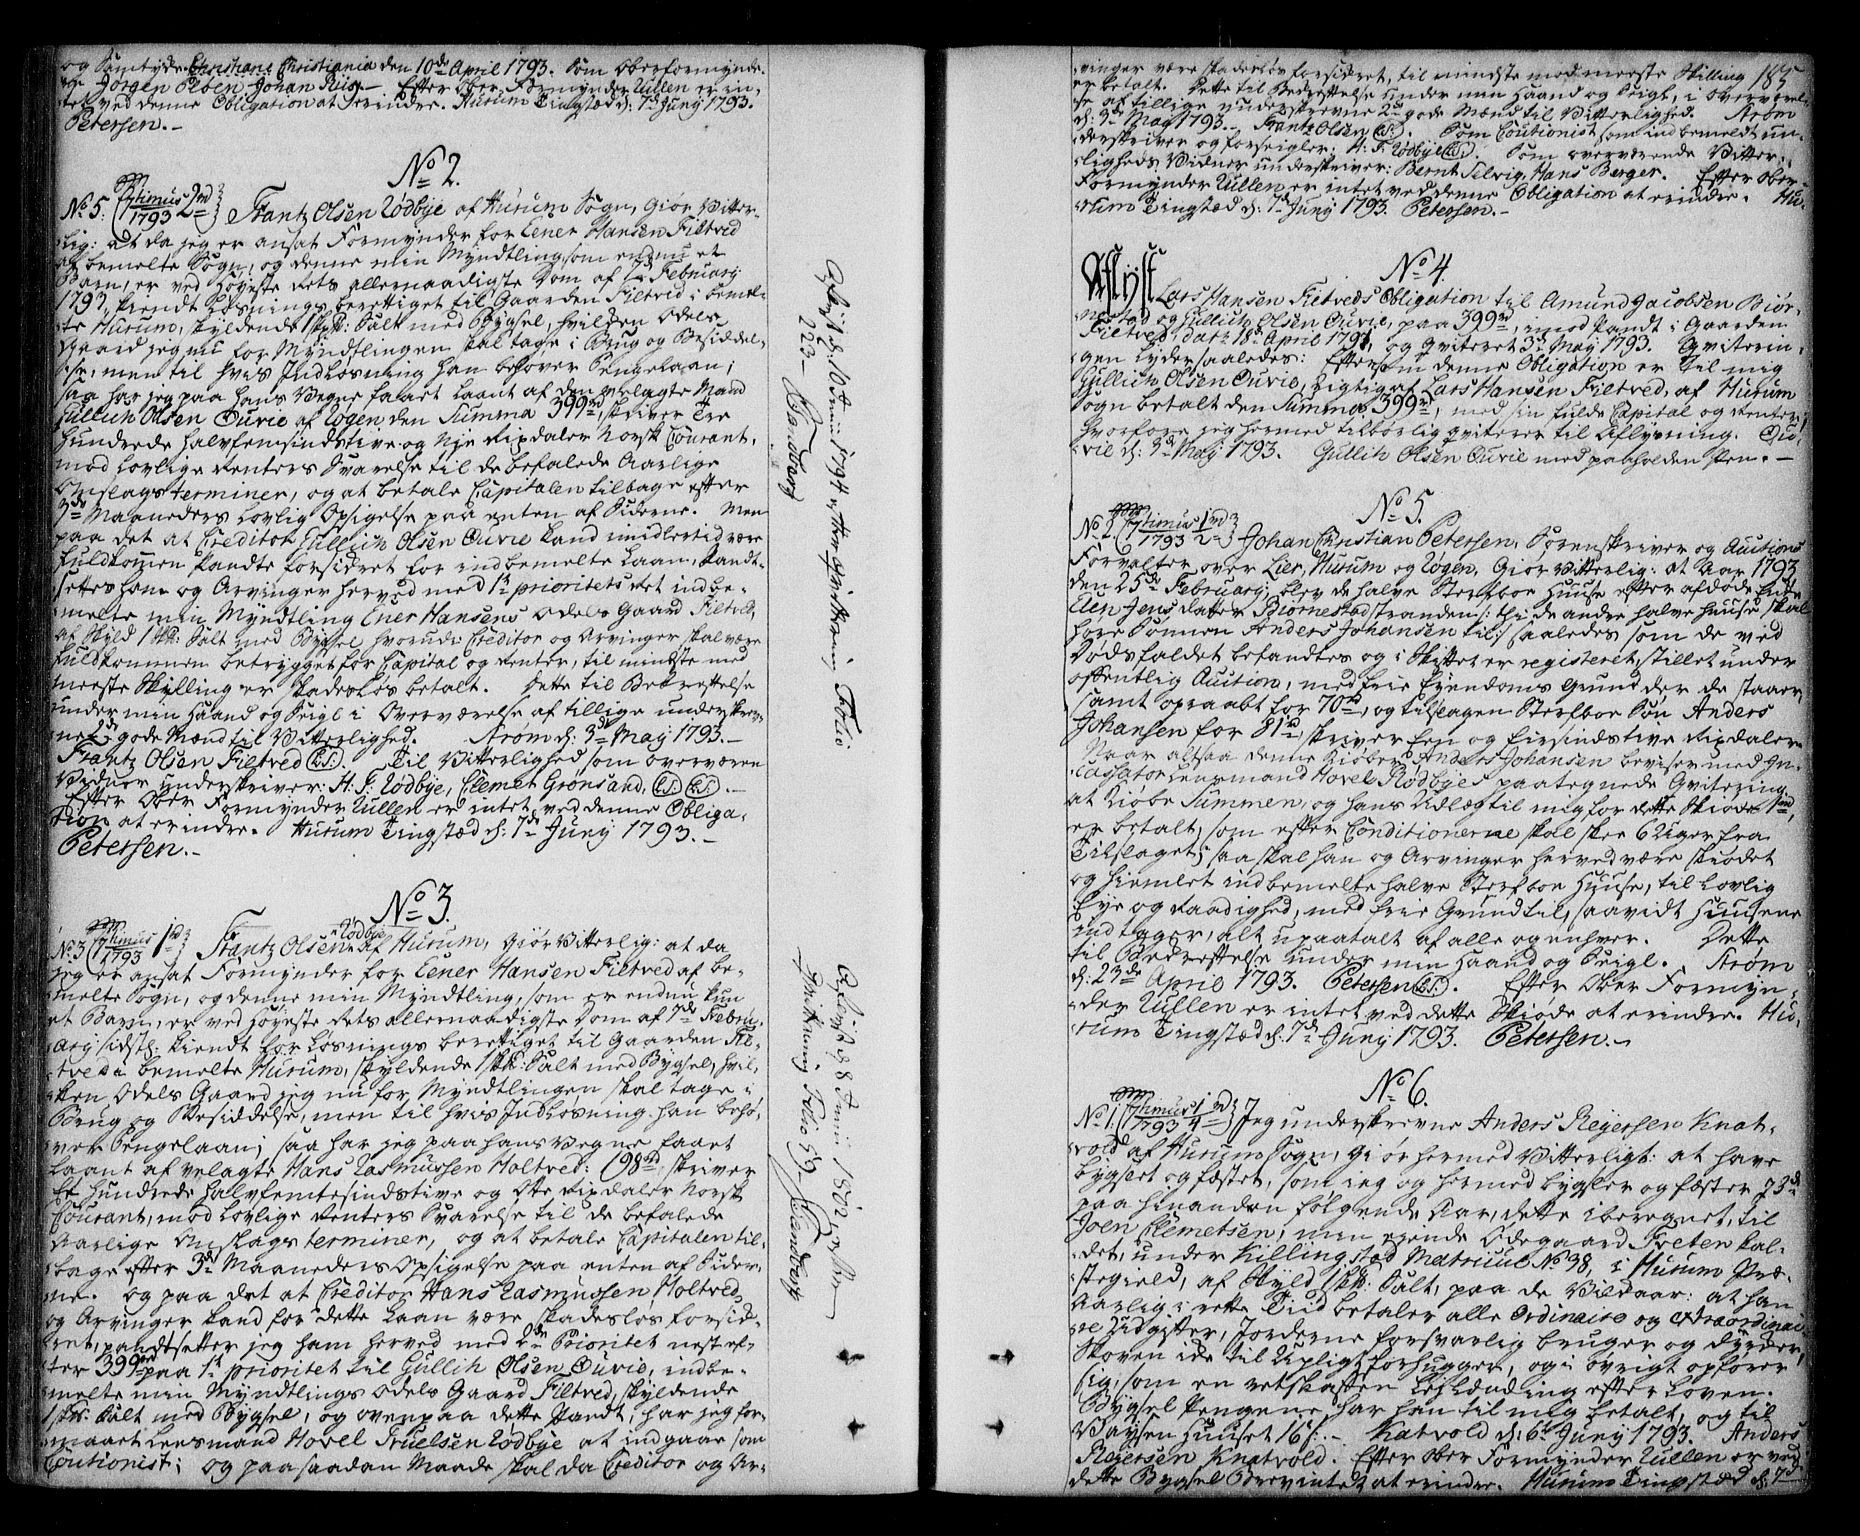 og Samtyde. Christiane Christiania den 10de April 1793. Som Oberformynde-
re Jørgen Olsen Johan Riis. Efter Ober Formynder Rullen er in-
tet ved denne Obligation at erindre. Hurum Tingstæd d: 7de Juny 1793.
Petersen.
No 2.
No 5. 1793 Frantz Olsen Rødbye af Hurum Sogn, Giør Vitter-
lig: at da jeg er ansat Formynder for Eener Hansen Filtved
af bemelte Sogn, og denne min Myndtling, som endnu et
Barn, er ved Høyeste Rets allernaadigste Dom af 7de February
1793, kiendt Løsnings berettiget til Gaarden Filtved i bemel-
te Hurum, skyldende 1 Skp: Salt med Bygsel, hvilken Odels
Gaard jeg nu for Myndtlingen skal tage i Brug og Besiddel-
se, men til hvis Indløsning han behøver Pengelaan;
saa har jeg paa hans Vegne faaet laant af den velagte Mand
Gullich Olsen Ourie af Røgen den Summa 399rd, skriver Tre
hundrede halvfemsindstive og Nje Rixdaler Norsk Courant,
mod lovlige Renters Svarelse til de befalede Aarlige
Omslags terminer, og at betale Capitalen tilbage efter
3de Maaneders lovlig Opsigelse paa enten af Siderne. Men
paa det at Creditor Gullich Olsen Ourie kand imidlertid være
fuldkommen Skadesløs forsikret for indbemelte Laan, Pandt-
sættes ham og Arvinger herved med 1te prioritets Ret indbe-
melte min Myndtling Ener Hansens Odels Gaard Filtved,
af Skyld 1 Skp: Salt med Bygsel, hvorudi Creditor og Arvinger skal være
fuldkommen betrygget for Capital og Renter, til mindste med
meeste Skilling er skadesløs betalt. Dette til Bekræftelse
under min Haand og Seigl i Overværelse af tillige underskrev-
ne 2de gode Mænd til Vitterlighed. Strøm d: 3de May 1793.
Frantz Olsen Filtved (L.S.). Til Vitterlighed, som overværen
Vidner underskriver: H. F. Rødbye, Clemet Grønsand, (L.S.) (L.S.).
Efter Ober Formynder Rullen er intet ved denne Obliga-
tion at erindre. Hurum Tingstæd d: 7de Juny 1793.
Petersen.
No 3.
No 3 1793 Frantz Olsen Rødbye af Hurum, Giør Vitterlig: at da
jeg er ansat Formynder for Eener Hansen Filtved af be-
melte Sogn, og denne min Myndtling, som er endnu kun
et Barn, er ved Høyeste Rets allernaadigste Dom af 7de Febru-
ary sidstl: kiendt for Løsnings berettiget til Gaarden Fil-
tved i bemelte Hurum, skyldende 1 Skp: Salt med Bygsel, hvil-
ken Odels Gaard jeg nu for Myndtlingen skal tage i
Brug og Besiddelse, men til hvis Indløsning han behø-
ver Pengelaan; saa har jeg paa hans Vegne faaet
laant af velagte Hans Rasmussen Holtved: 198rd, skriver
Et hundrede halvfemtesindstive og Otte Rixdaler Norsk
Courant, mod lovlige Renters Svarelse til de befalede
Aarlige Omslags terminer, og at betale Capitalen til-
bage efter 3de Maaneders Opsigelse paa enten af Sider-
ne. og paa det at Creditor Hans Rasmussen Holtved
og Arvinger kand for dette Laan være skadesløs forsik-
ret, pandtsætter jeg ham herved med 2de Prioritet næst ef-
ter 399rd paa 1te prioritet til Gullich Olsen Ourie, indbe-
melte min Myndtlings Odels Gaard Filtved, skyldende
1 Skp: Salt med Bygsel, og ovenpaa dette Pandt, har jeg for-
maaet Lensmand Hovel Truelsen Rødbye at indgaae som
Coutionist; og paa saadan Maade skal da Creditor og Ar-
123 Sandborg
Folio
1802
Folio 59
185
vinger være skadesløs forsikret, til mindste med meeste Skilling
er betalt. Dette til Bekræftelse under min Haand og Seigl, i Overværel-
se af tillige underskrevne 2de gode Mænd til Vitterlighed. Strøm
d: 3de May 1793. Frantz Olsen (L.S.). Som Coutionist som indbemeldt un-
derskriver og forseigler: H. F. Rødbye (L.S.). Som overværende Vitter-
ligheds Vidner underskriver: Bernt Selvig, Hans Berger. Efter Ober
Formynder Rullen er intet ved denne Obligation at erindre. Hu-
rum Tingstæd d: 7de Juny 1793. Petersen.
No 4.
Aflyst Lars Hansen Filtveds Obligation til Amund Jacobsen Biør-
nestad og Gullich Olsen Ourie, paa 399rd, imod Pandt i Gaarden
Filtved, dat: 18de April 1791, og qviteret 3de May 1793. Qviterin-
gen lyder saaledes: Eftersom denne Obligation er til mig
Gullich Olsen Ourie, rigtig af Lars Hansen Filtved, af Hurum
Sogn betalt den Summa 399rd, med sin fulde Capital og Renter;
hvorfore jeg hermed tilbørlig qviterer til Aflysning. Ou-
rie d: 3de May 1793. Gullich Olsen Ourie med paaholden Pen.
No 5.
No 2. 1793 Johan Christian Petersen, Sorenskriver og Auctions
Forvalter over Lier, Hurum og Røgen, Giør Vitterlig: at Aar 1793
den 25de February, blev de halve Sterfboe Huuse efter afdøde Enke
Elen Jens datter Biørnestadstranden /: thi de andre halve huuse, skal
høre Sønnen Anders Johansen til :/ saaledes som de ved
Dødsfaldet befandtes og i Skiftet er registeret, stillet under
offentlig Auction, med frie Eyendoms Grund der de staaer,
samt opraabt for 70rd, og tilslagen Sterfboe Søn Anders
Johansen for 81rd, skriver Een og Fiirsindstive Rixdaler.
Naar altsaa denne Kiøber Anders Johansen beviser med In-
cassator Lensmand Hovel Rødbyes paategnede Qvitering
at Kiøbe Summen, og hans Udlæg til mig for dette Skiøde 1rd,
er betalt, som efter Conditionerne skall skee 6 Uger fra
Tilslaget; saa skal han og Arvinger herved være skiødet
og hiemlet indbemelte halve Sterfboe Huuse, til lovlig
Eye og Raadighed, med frie Grund til, saavidt Huusene
indtager, alt upaatalt af alle og enhver. Dette
til Bekræftelse under min Haand og Seigl. Strøm
d: 23de April 1793. Petersen (L.S.). Efter Ober Formyn-
der Rullen er intet ved dette Skiøde at erindre. Hu-
rum Tingstæd d: 7de Juny 1793. Petersen.
No 6.
No 1. 1793 Jeg underskrevne Anders Reyersen Knat-
vold af Hurum Sogn, giør hermed Vitterligt: at have
bygslet og fæstet, som jeg og hermed bygsler og fæster 73de
paa hinanden følgende Aar, dette iberegnet, til
Joen Clemetsen, min eyende Ødegaard Træten kal-
det, under Killingstad Matricul No 38, i Hurum Præ-
stegield, af Skyld 1 Skp: Salt, paa de Vilkaar: at han
Aarlig i rette Tiid betaler alle ordinaire og extraordinai-
re Udgifter, Jorderne forsvarlig bruger og dyrker,
Skoven ide til Upligt forhugger, og i øvrigt opfører
sig, som en retskaffen Leilænding efter Loven.
Bygsel Pengene har han til mig betalt, og til
Vaysen Huuset 16 s. Knatvold d: 6te Juny 1793. Anders
Reyersen Knatvold. Efter Ober Formynder Rullen er ved
dette Bygsel Brev intet at erindre. Hurum Tingstæd d: 7de